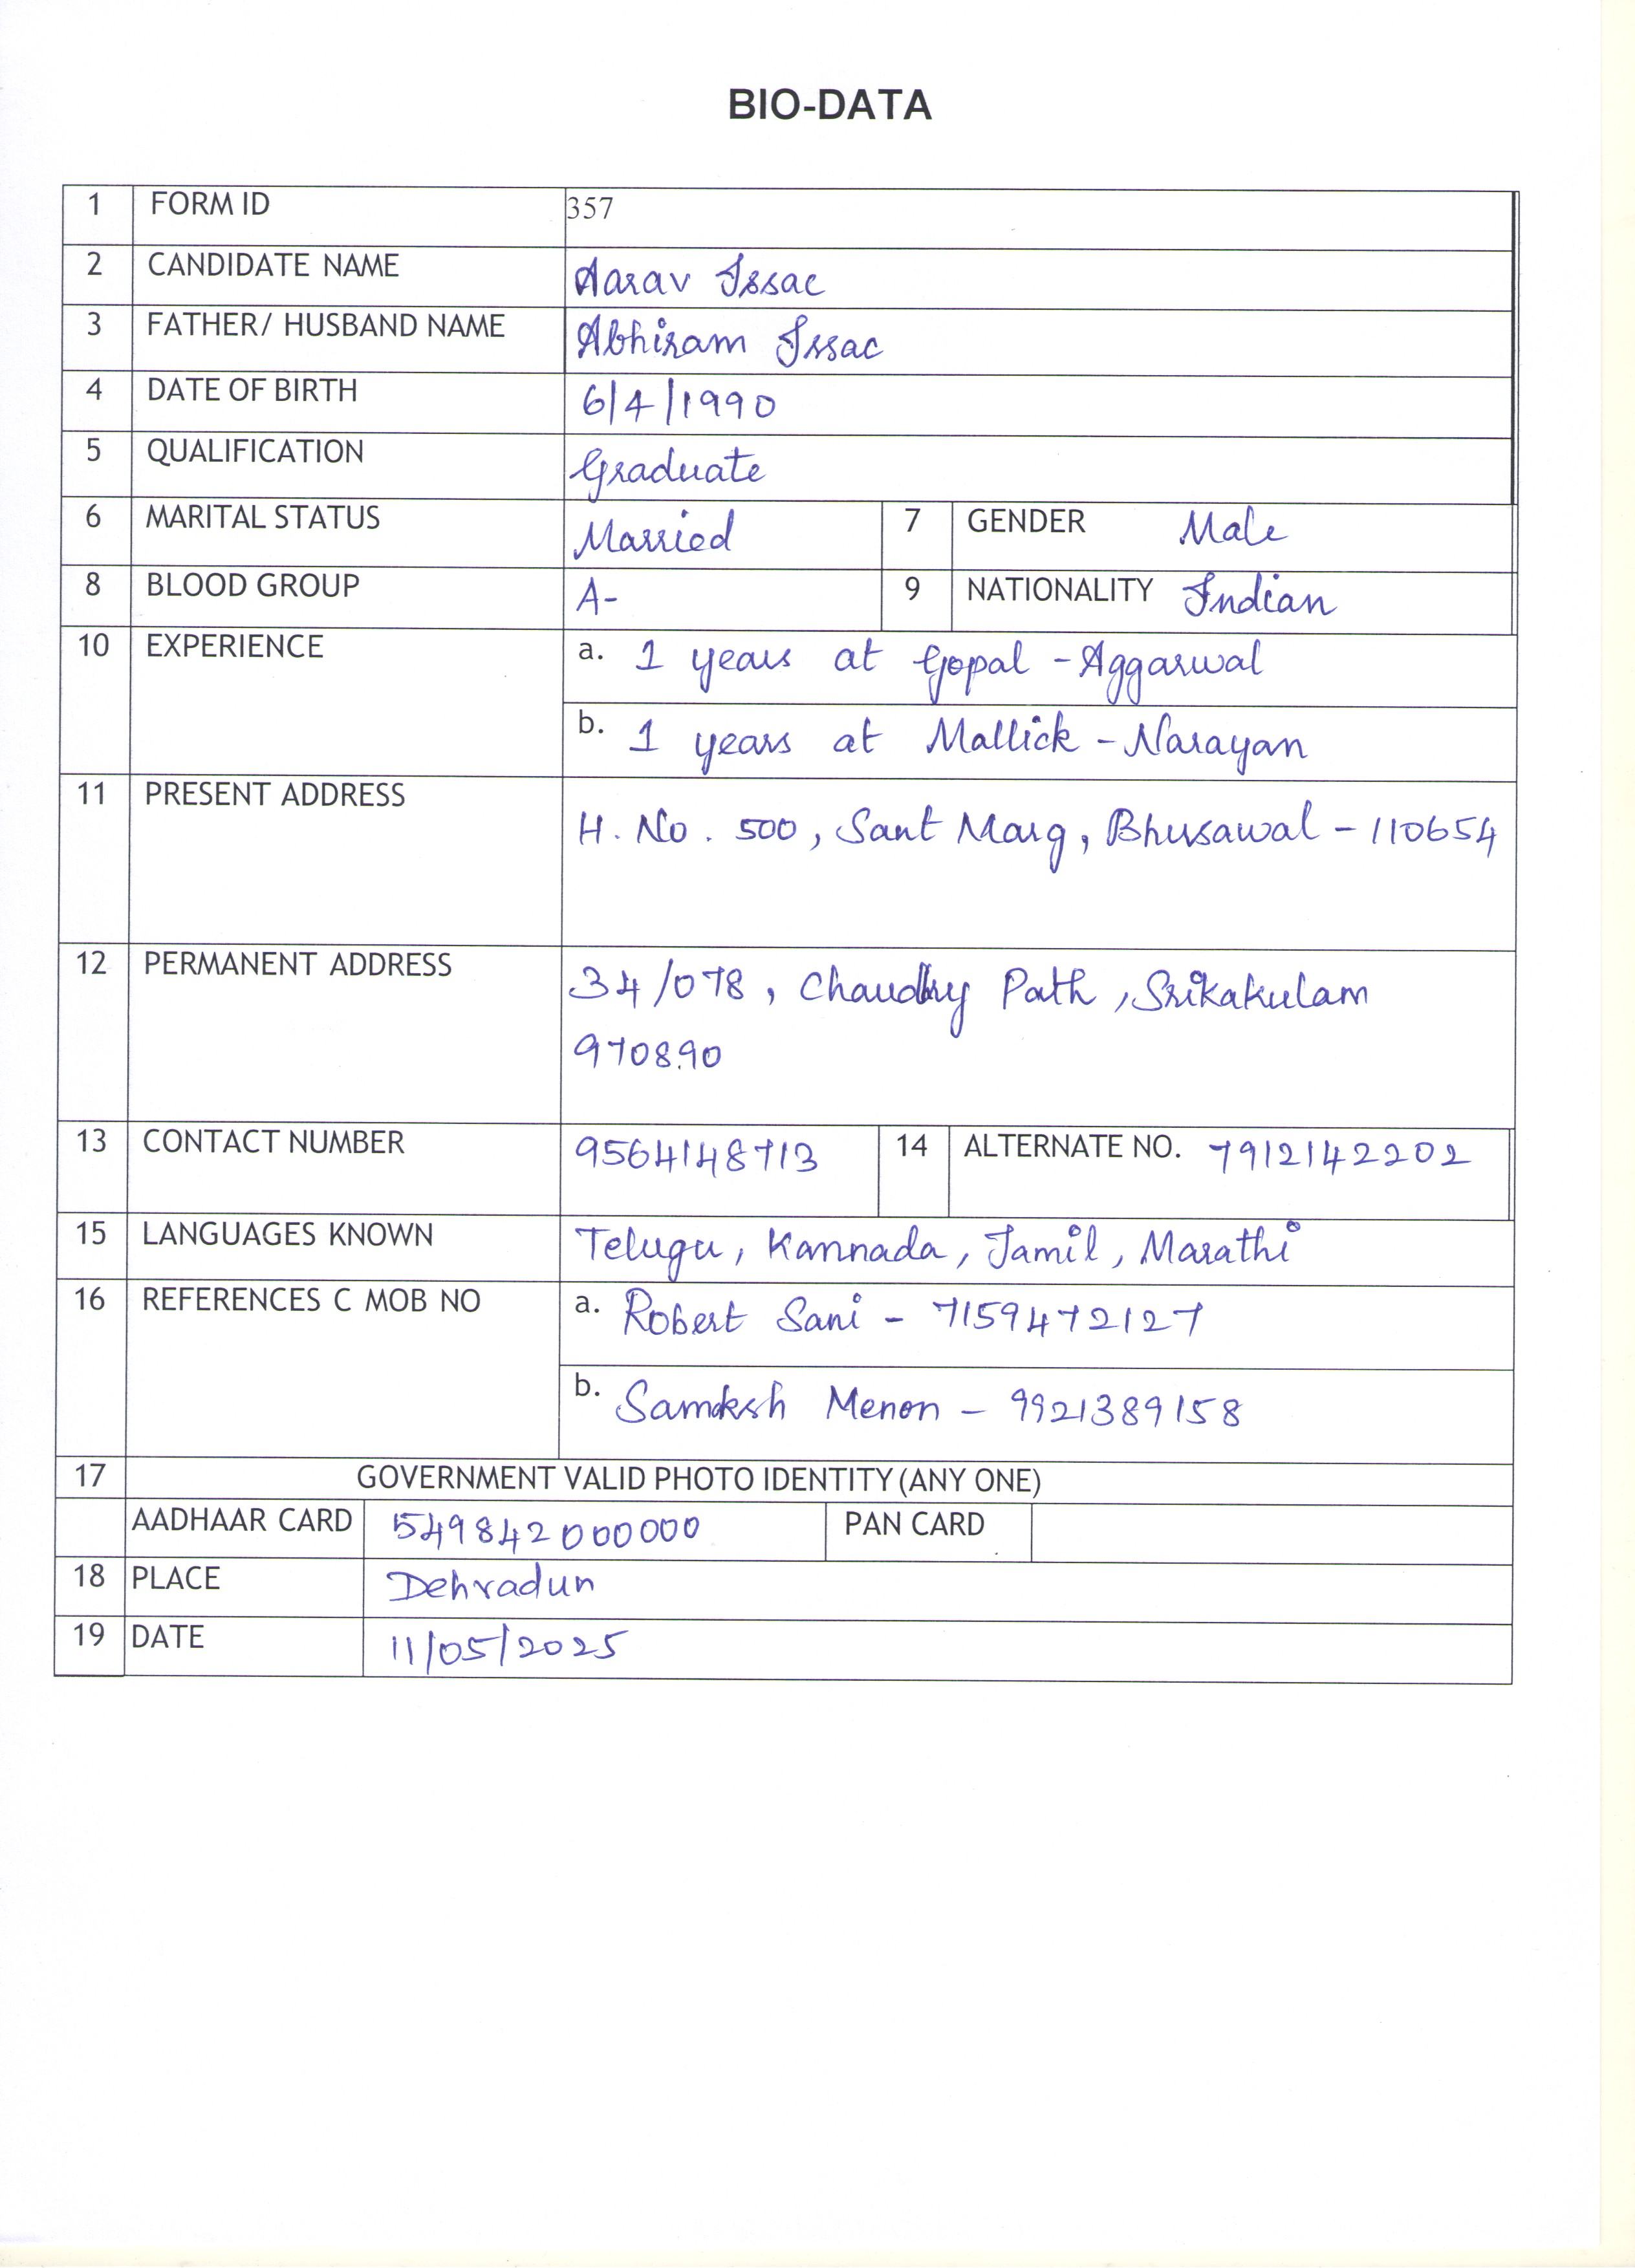 BIO-DATA
1 FORM ID 357
2 CANDIDATE NAME Aarav Issac
3 FATHER/ HUSBAND NAME Abhiram Issac
4 DATE OF BIRTH 6/4/1990
5 QUALIFICATION Graduate
6 MARITAL STATUS Married 7 GENDER Male
8 BLOOD GROUP A- 9 NATIONALITY Indian
10 EXPERIENCE a. 1 years at Gopal - Aggarwal
b. 1 years at Mallick - Narayan
11 PRESENT ADDRESS H. No. 500, Sant Marg, Bhusawal - 110654
12 PERMANENT ADDRESS 34/078, Chaudhry Path, Srikakulam
970890
13 CONTACT NUMBER 9564148713 14 ALTERNATE NO. 7912142202
15 LANGUAGES KNOWN Telugu, Kannada, Tamil, Marathi
16 REFERENCES C MOB NO a. Robert Sani - 7159472127
b. Menon - 9921389158
17 GOVERNMENT VALID PHOTO IDENTITY (ANY ONE)
AADHAAR CARD 549842000000 PAN CARD
18 PLACE Dehradun
19 DATE 11/05/2025